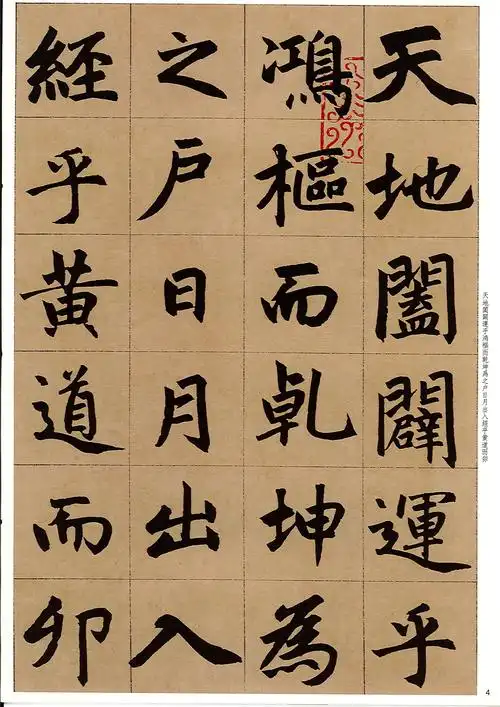 天地闔闢運乎
鴻樞而乹坤為
之戶日月出入
經乎黃道而卯
天地闔闢運乎鴻樞而乾坤爲之户日月出入經乎黄道而卯
4